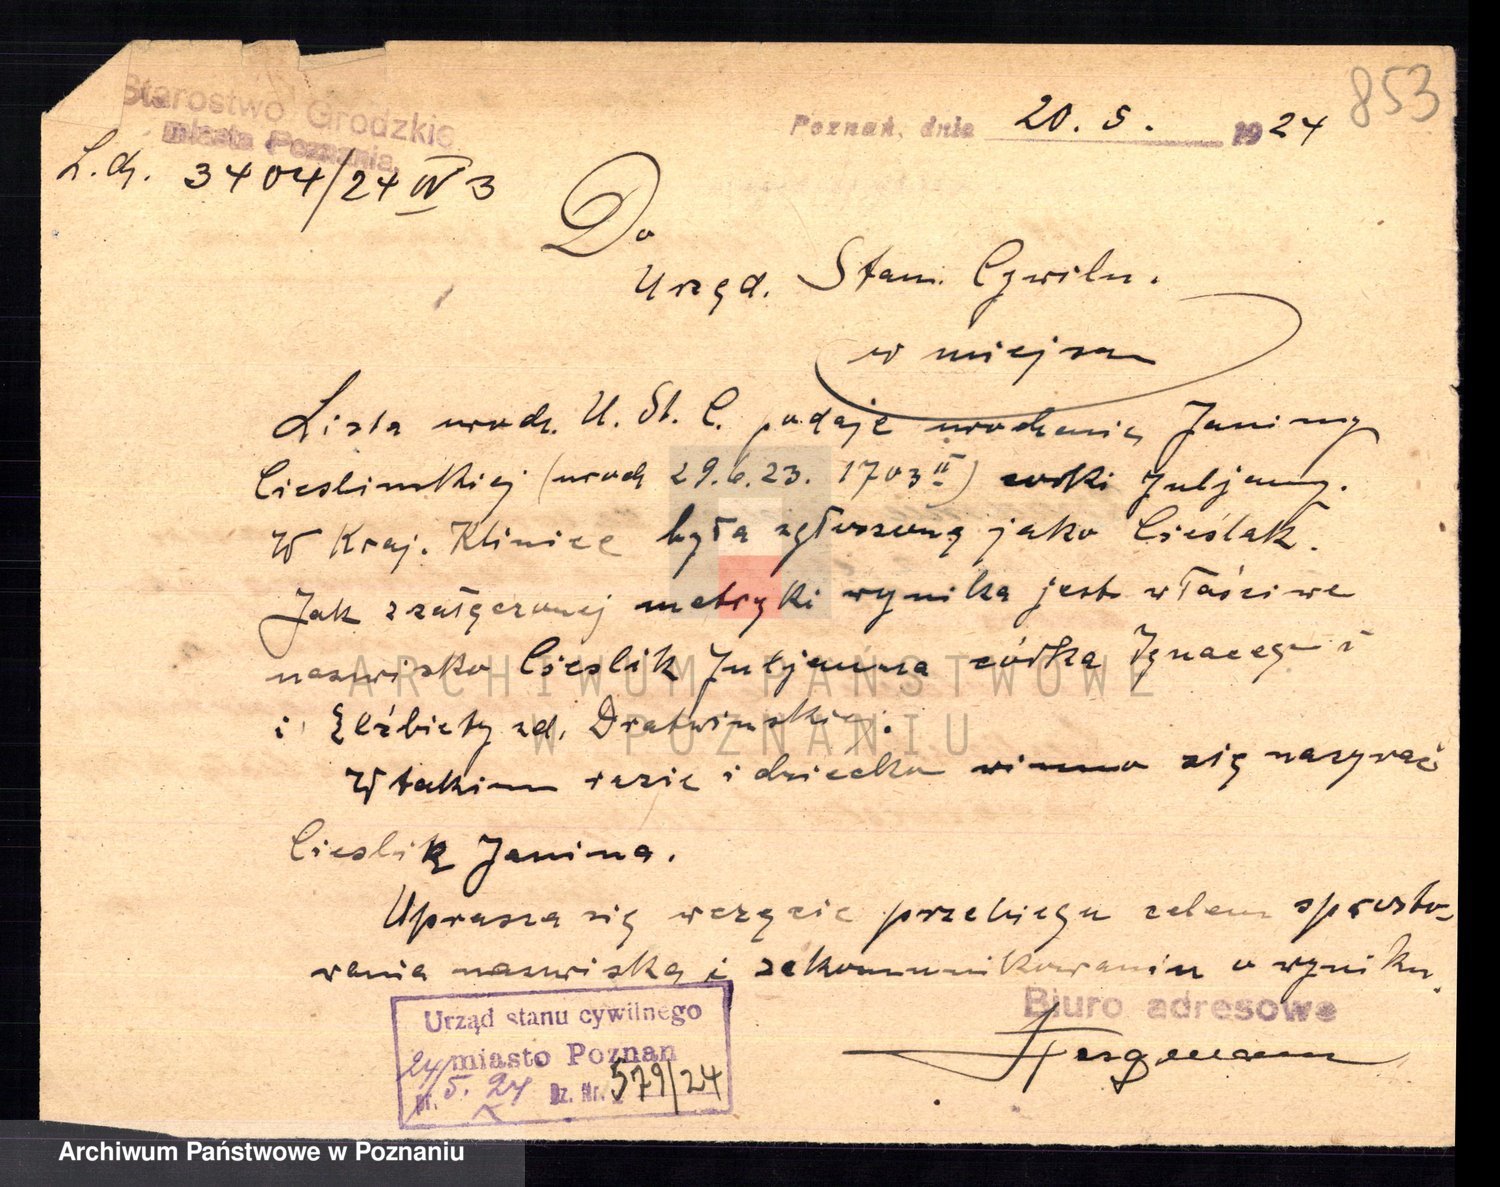 853
Starostwo Grodzkie
miasta Poznania.
Poznań, dnia 20. 5. 1924
L. dz. 3404/24 IV 3
Do
Urzęd. Stan. Cywiln.
w miejscu
Lista urodz. U. St. C. podaje urodzenie Janiny
Cieslinskiej (urodz 29.6.23. 1703 II) corki Juljanny.
W Kraj. Klinice była zgłoszoną jako Cieślak.
Jak z załączonej metryki wynika jest właściwe
nazwisko Cieslik Juljanna córka Ignacego i
i Elżbiety zd. Dratwinskiej.
W takim razie i dziecko winno się nazywać
Cieslik Janina.
Uprasza się wczęcie przebiegu celem sprosto-
wania nazwiska i zakomunikowaniu o wyniku.
Biuro adresowe
Urząd stanu cywilnego
miasto Poznań
24/5. 24 Dz. Nr. 579/24
ARCHIWUM PAŃSTWOWE
W POZNANIU
Archiwum Państwowe w Poznaniu